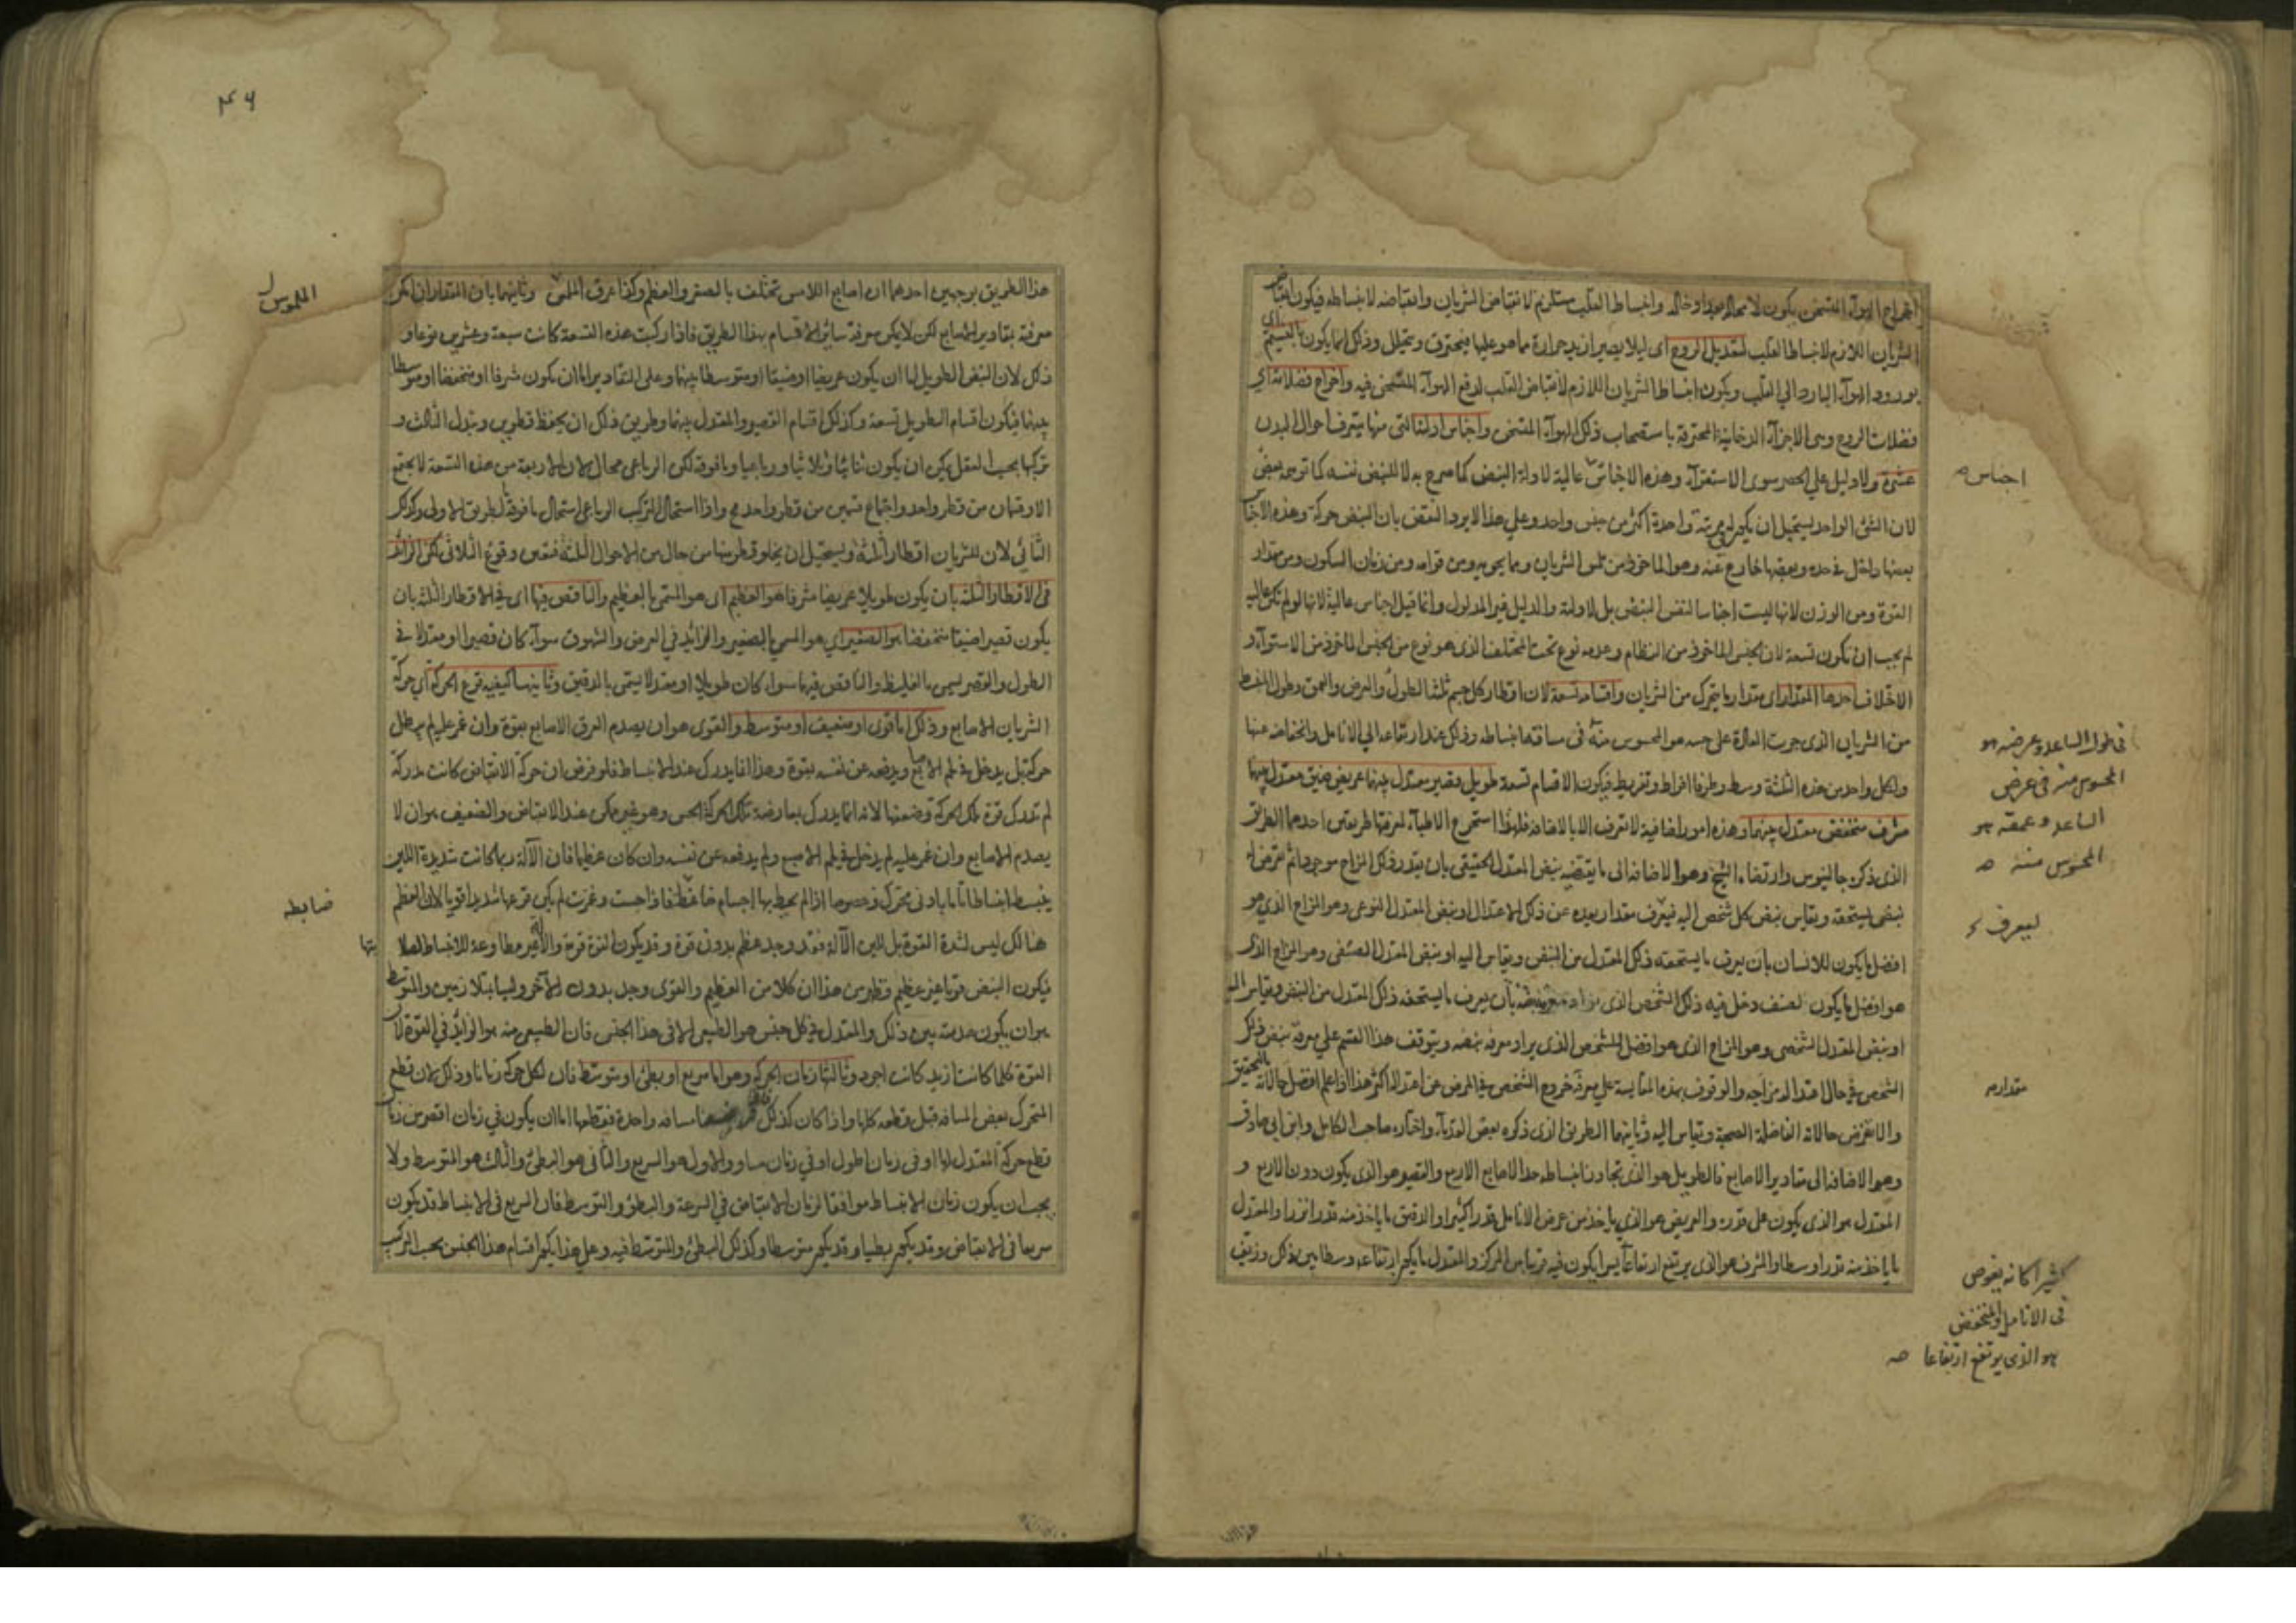 اخراج الهواء المتسخن يكون لا محالة وانبساط القلب مستلزم لانقباض الشريان وانقباضه لانبساطه فيكون انقباض
الشريان اللازم لانبساط القلب لتعديل الروح اى ليلا يصير ازيد حرارة مما هو عليها فيحترق ويتحلل وذلك انما يكون بالنسيم اى
بورود الهواء البارد الي القلب ويكون انبساط الشريان اللازم لانقباض القلب لدفع الهواء المتسخن فيه واخراج فضلاته اي
فضلات الروح وهى الاجزاء الدخانية المحترقة باستصحاب ذلك الهواء المتسخن واجناس ادلته التى منها يتعرف احوال البدن
عشرة ولا دليل علي الحصر سوى الاستقراء وهذه الاجناس عالية لادلة النبض كما صرح به لا للنبض نفسه كما توهمه بعض
لان الشئ الواحد يستحيل ان يكون له فى مرتبة واحدة اكثر من جنس واحد وعلي هذا لا يرد النقض بان النبض حركة وهذه الاجناس
بعضها داخل فى حده وبعضها خارج عنه وهو الماخوذ من ملمس الشريان ومما يحويه ومن قوامه ومن زمان السكون ومن مقدار
القوة ومن الوزن لانها ليست اجناسا لنفس النبض بل لادلته والدليل غير المدلول وانما قيل اجناس عالية لانها لو لم تكن عالية
لم يجب ان تكون تسعة لان الجنس الماخوذ من النظام وعدمه نوع تحت المختلف الذى هو نوع من الجنس الماخوذ من الاستواء و
الاختلاف احدها المقدار اى مقدار ما يتحرك من الشريان واقسامه تسعة لان اقطار كل جسم ثلثة الطول والعرض والعمق وطول النبض
من الشريان الذى جرت العادة على جسه هو المحسوس منه فى مسافة انبساطه وذلك عند ارتفاعه الي الانامل وانخفاضه عنها
ولكل واحد من هذه الثلثة وسط وطرفا افراط وتفريط فيكون الاقسام تسعة طويل وقصير معتدل بينهما عريض ضيق معتدل بينهما
مشرف منخفض معتدل بينهما وهذه امور اضافية لا تعرف الا بالاضافة فلهذا استخرج الاطباء لمعرفتها طريقتين احدهما الطريق
الذى ذكره جالينوس وارتضاه الشيخ وهو الاضافة الى ما يقتضيه نبض المعتدل الحقيقى بان يقدر ذلك المزاج موجودا ثم يفرض له
نبض يستحقه ويقاس نبض كل شخص اليه فيعرف مقدار بعده عن ذلك الاعتدال او نبض المعتدل النوعى وهو المزاج الذي هو
افضل ما يكون للانسان بان يعرف ما يستحقه ذلك المعتدل من النبض ويقاس اليه او نبض المعتدل الصنفى وهو المزاج الذى
هو افضل ما يكون لصنف دخل فيه ذلك الشخص الذى يراد معرفة نبضه بان يعرف ما يستحقه ذلك المعتدل من النبض ويقاس اليه
او نبض المعتدل الشخصى وهو المزاج الذى هو افضل للشخص الذى يراد معرفة نبضه ويتوقف هذا القسم علي معرفة نبض ذلك
الشخص فى حال اعتدال مزاجه والوقوف بهذه المقايسة علي معرفة خروج الشخص فى المرض عن اعتداله اكثر هذا اذا علم افضل حالاته بالتحقيق
والا يفرض حالاته الفاضلة الصحية ويقاس اليه وثانيهما الطريق الذى ذكره بعض القدماء واختاره صاحب الكامل وابن ابى صادق
وهو الاضافة الى مقادير الاصابع فالطويل هو الذى تجاوز انبساطه حد الاصابع الاربع والقصير هو الذى يكون دون الاربع و
المعتدل هو الذى يكون على قدره والعريض هو الذي ياخذ من عرض الانامل قدرا كثيرا والدقيق ما ياخذ منه قدرا نزرا والمعتدل
ما ياخذ منه قدرا وسطا والمشرف هو الذى يرتفع ارتفاعا يسيرا يكون فيه قريبا من المركز والمعتدل ما يكون ارتفاعه وسطا بين ذلك وزيف
اجناس صه
فى طول الساعد وعرضه هو
المحسوس منه فى عرض
الساعد وعمقه هو
المحسوس منه صه
ليعرف
مقدار صه
كثيرا كانه يغوص
فى الانامل والمنخفض
هو الذى يرتفع ارتفاعا صه
۴۶
هذا الطريق بوجهين احدهما ان اصابع اللامس تختلف بالصغر والعظم وكذا عرق الملمس وثانيهما بان المقدار ان امكن
معرفة بمقادير الاصابع لكن لا يمكن معرفة سائر الاقسام بهذا الطريق فاذا ركبت هذه التسعة كانت سبعة وعشرين نوعا و
ذلك لان النبض الطويل اما ان يكون عريضا او ضيقا او متوسطا بينهما وعلى التقادير اما ان يكون مشرفا او منخفضا او متوسطا
بينهما فيكون اقسام الطويل تسعة وكذلك اقسام القصير والمعتدل بينهما وطريق ذلك ان يحفظ قطرين وتبدل الثالث و
تركبها بحسب العقل يمكن ان يكون ثنائيا وثلاثيا ورباعيا وما فوقه لكن الرباعى محال لان الاربعة من هذه التسعة لا يجتمع
الا وقسمان من قطر واحد واجتماع قسمين من قطر واحد مح واذا استحال التركب الرباعى استحال ما فوقه بطريق الاولى وكذلك
الثنائي لان للشريان اقطارا ثلثة ويستحيل ان يخلو قطر منها من حال من الاحوال الثلثة فتعين وقوع الثلاثى لكن الزائد
فى الاقطار الثلثة بان يكون طويلا عريضا مشرفا هو العظيم اى هو المسمى بالعظيم والناقص فيها اى فى الاقطار الثلثة بان
يكون قصيرا ضيقا منخفضا هو الصغير اي هو المسمي بالصغير والزائد في العرض والشهوق سواء كان قصيرا او معتدلا في
الطول والقصر يسمى بالغليظ والناقص فيهما سواء كان طويلا او معتدلا يسمى بالدقيق وثانيها كيفية قرع الحركة اي حركة
الشريان الاصابع وذلك اما قوى او ضعيف او متوسط والقوى هو ان يصدم العرق الاصابع بقوة وان غمز عليه لم يبطل
حركته بل يدخل فى لحم الاصابع ويدفعه عن نفسه بقوة وهذا انما يدرك عند الانبساط فلو فرض ان حركة الانقباض كانت مدركة
لم تدرك قوة تلك الحركة وضعفها لانه انما يدرك بمعارضة تلك الحركة الحس وهو غير ممكن عند الانقباض والضعيف هو ان لا
يصدم الاصابع وان غمز عليه لم يدخل فى لحم الاصبع ولم يدفعه عن نفسه وان كان عظيما فان الآلة ربما كانت شديدة اللين
ينبسط انبساطا تاما بادنى محرك وخصوصا اذا لم يحط بها اجسام ضاغطة فاذا جست وغمزت لم يكن قرعها شديدا قويا لان العظم
هنالك ليس لشدة القوة بل للين الآلة فقد وجد عظم بدون قوة وقد يكون القوة قوية والآلة غير مطاوعة للانبساط لصلا
فيكون النبض قويا غير عظيم فظهر من هذا ان كلا من العظيم والقوى وجد بدون الآخر وليسا بمتلازمين والمتوسط
هو ان يكون صدمته بين ذلك والمعتدل فى كل جنس هو الطبيعى الا فى هذا الجنس فان الطبيعى منه هو الزائد في القوة لان
القوة كلما كانت ازيد كانت اجود وثالثها زمان الحركة وهو اما سريع او بطئ او متوسط فان لكل حركة زمانا وذلك لان قطع
المتحرك بعض المسافة قبل قطعه كلها واذا كان كذلك مسافة واحدة فقطعها اما ان يكون في زمان اقصر من زمان
قطع حركة المعتدل لها او فى زمان اطول او في زمان مساو والاول هو السريع والثانى هو البطئ والثالث هو المتوسط ولا
يجب ان يكون زمان الانبساط موافقا لزمان الانقباض في السرعة والبطؤ والتوسط فان السريع فى الانبساط قد يكون
سريعا فى الانقباض وقد يكون بطيئا وقد يكون متوسطا وكذلك البطئ والمتوسط فيه وعلى هذا يكون اقسام هذا الجنس بحسب التركيب
الملموس
ضابطه
بتها